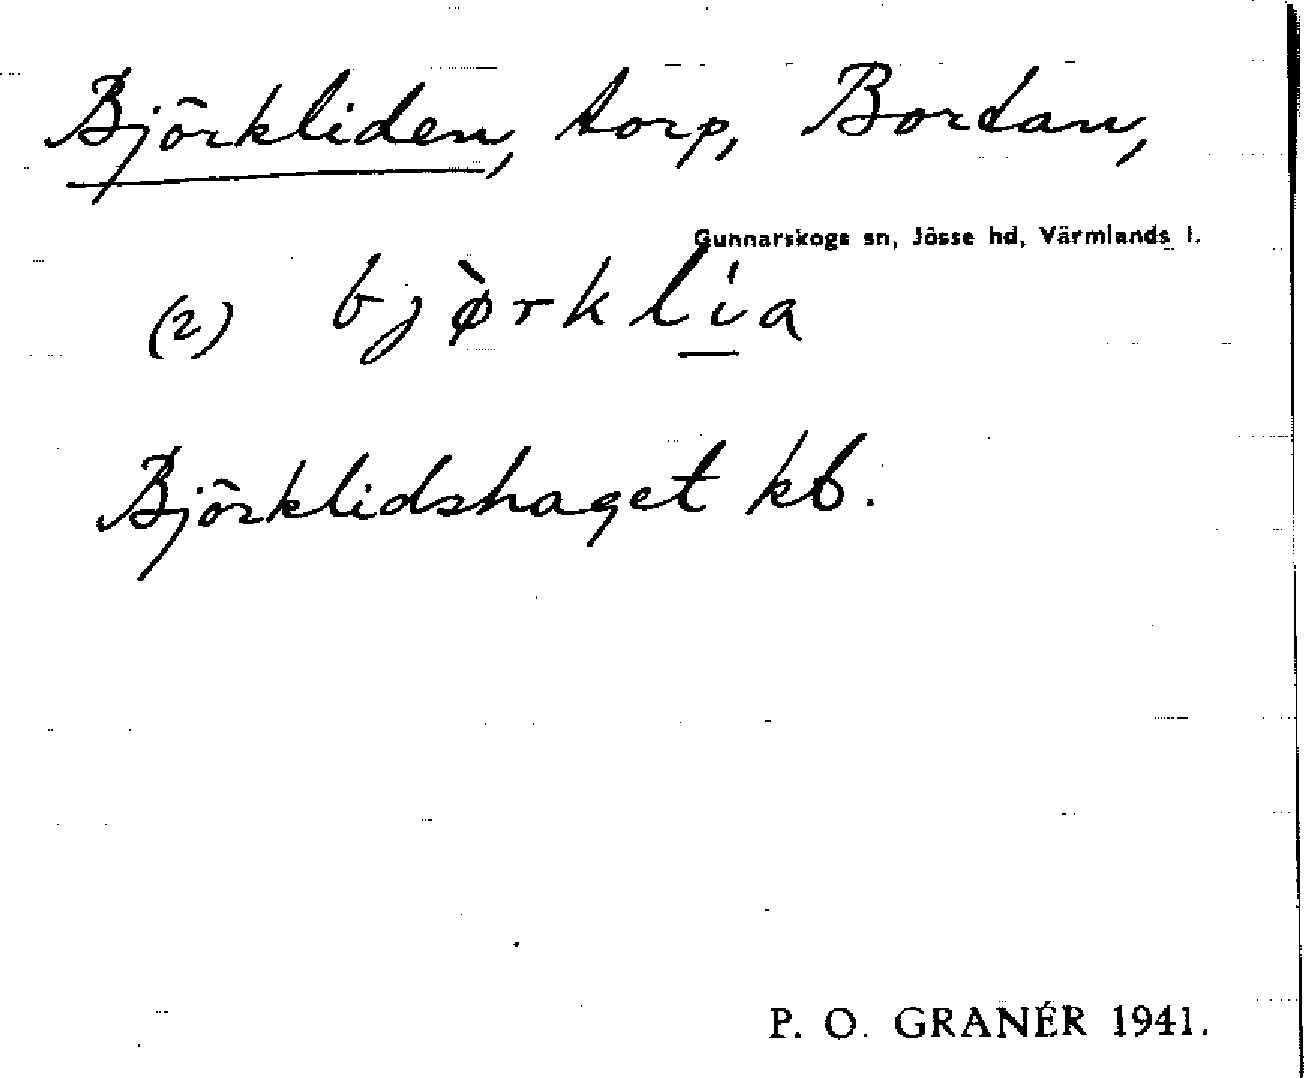 Björkliden, torp, Bortan,
Gunnarskogs sn, Jösse hd, Värmlands l.
(2) bjø̀rklía
Björklidshaget kb.
P. O. GRANÉR 1941.